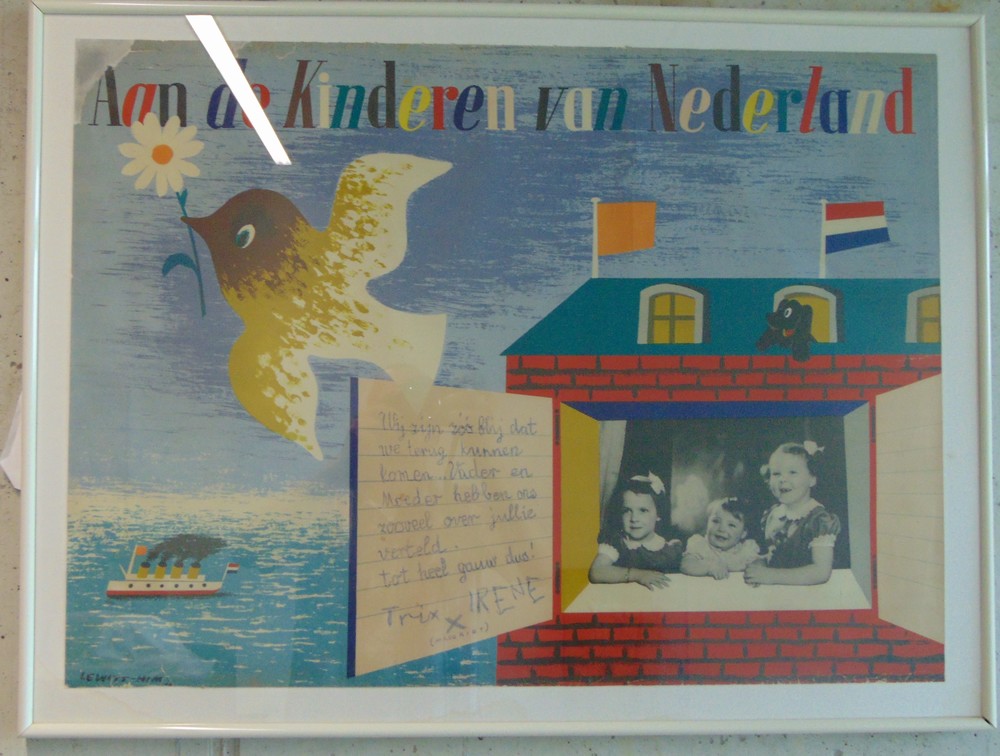 Aan de Kinderen van Nederland
Wij zijn zóó blij dat
we terug kunnen
komen.. Vader en
Moeder hebben ons
zooveel over jullie
verteld.
tot heel gauw dus!
Trix x IRENE
LEWITT-HIM